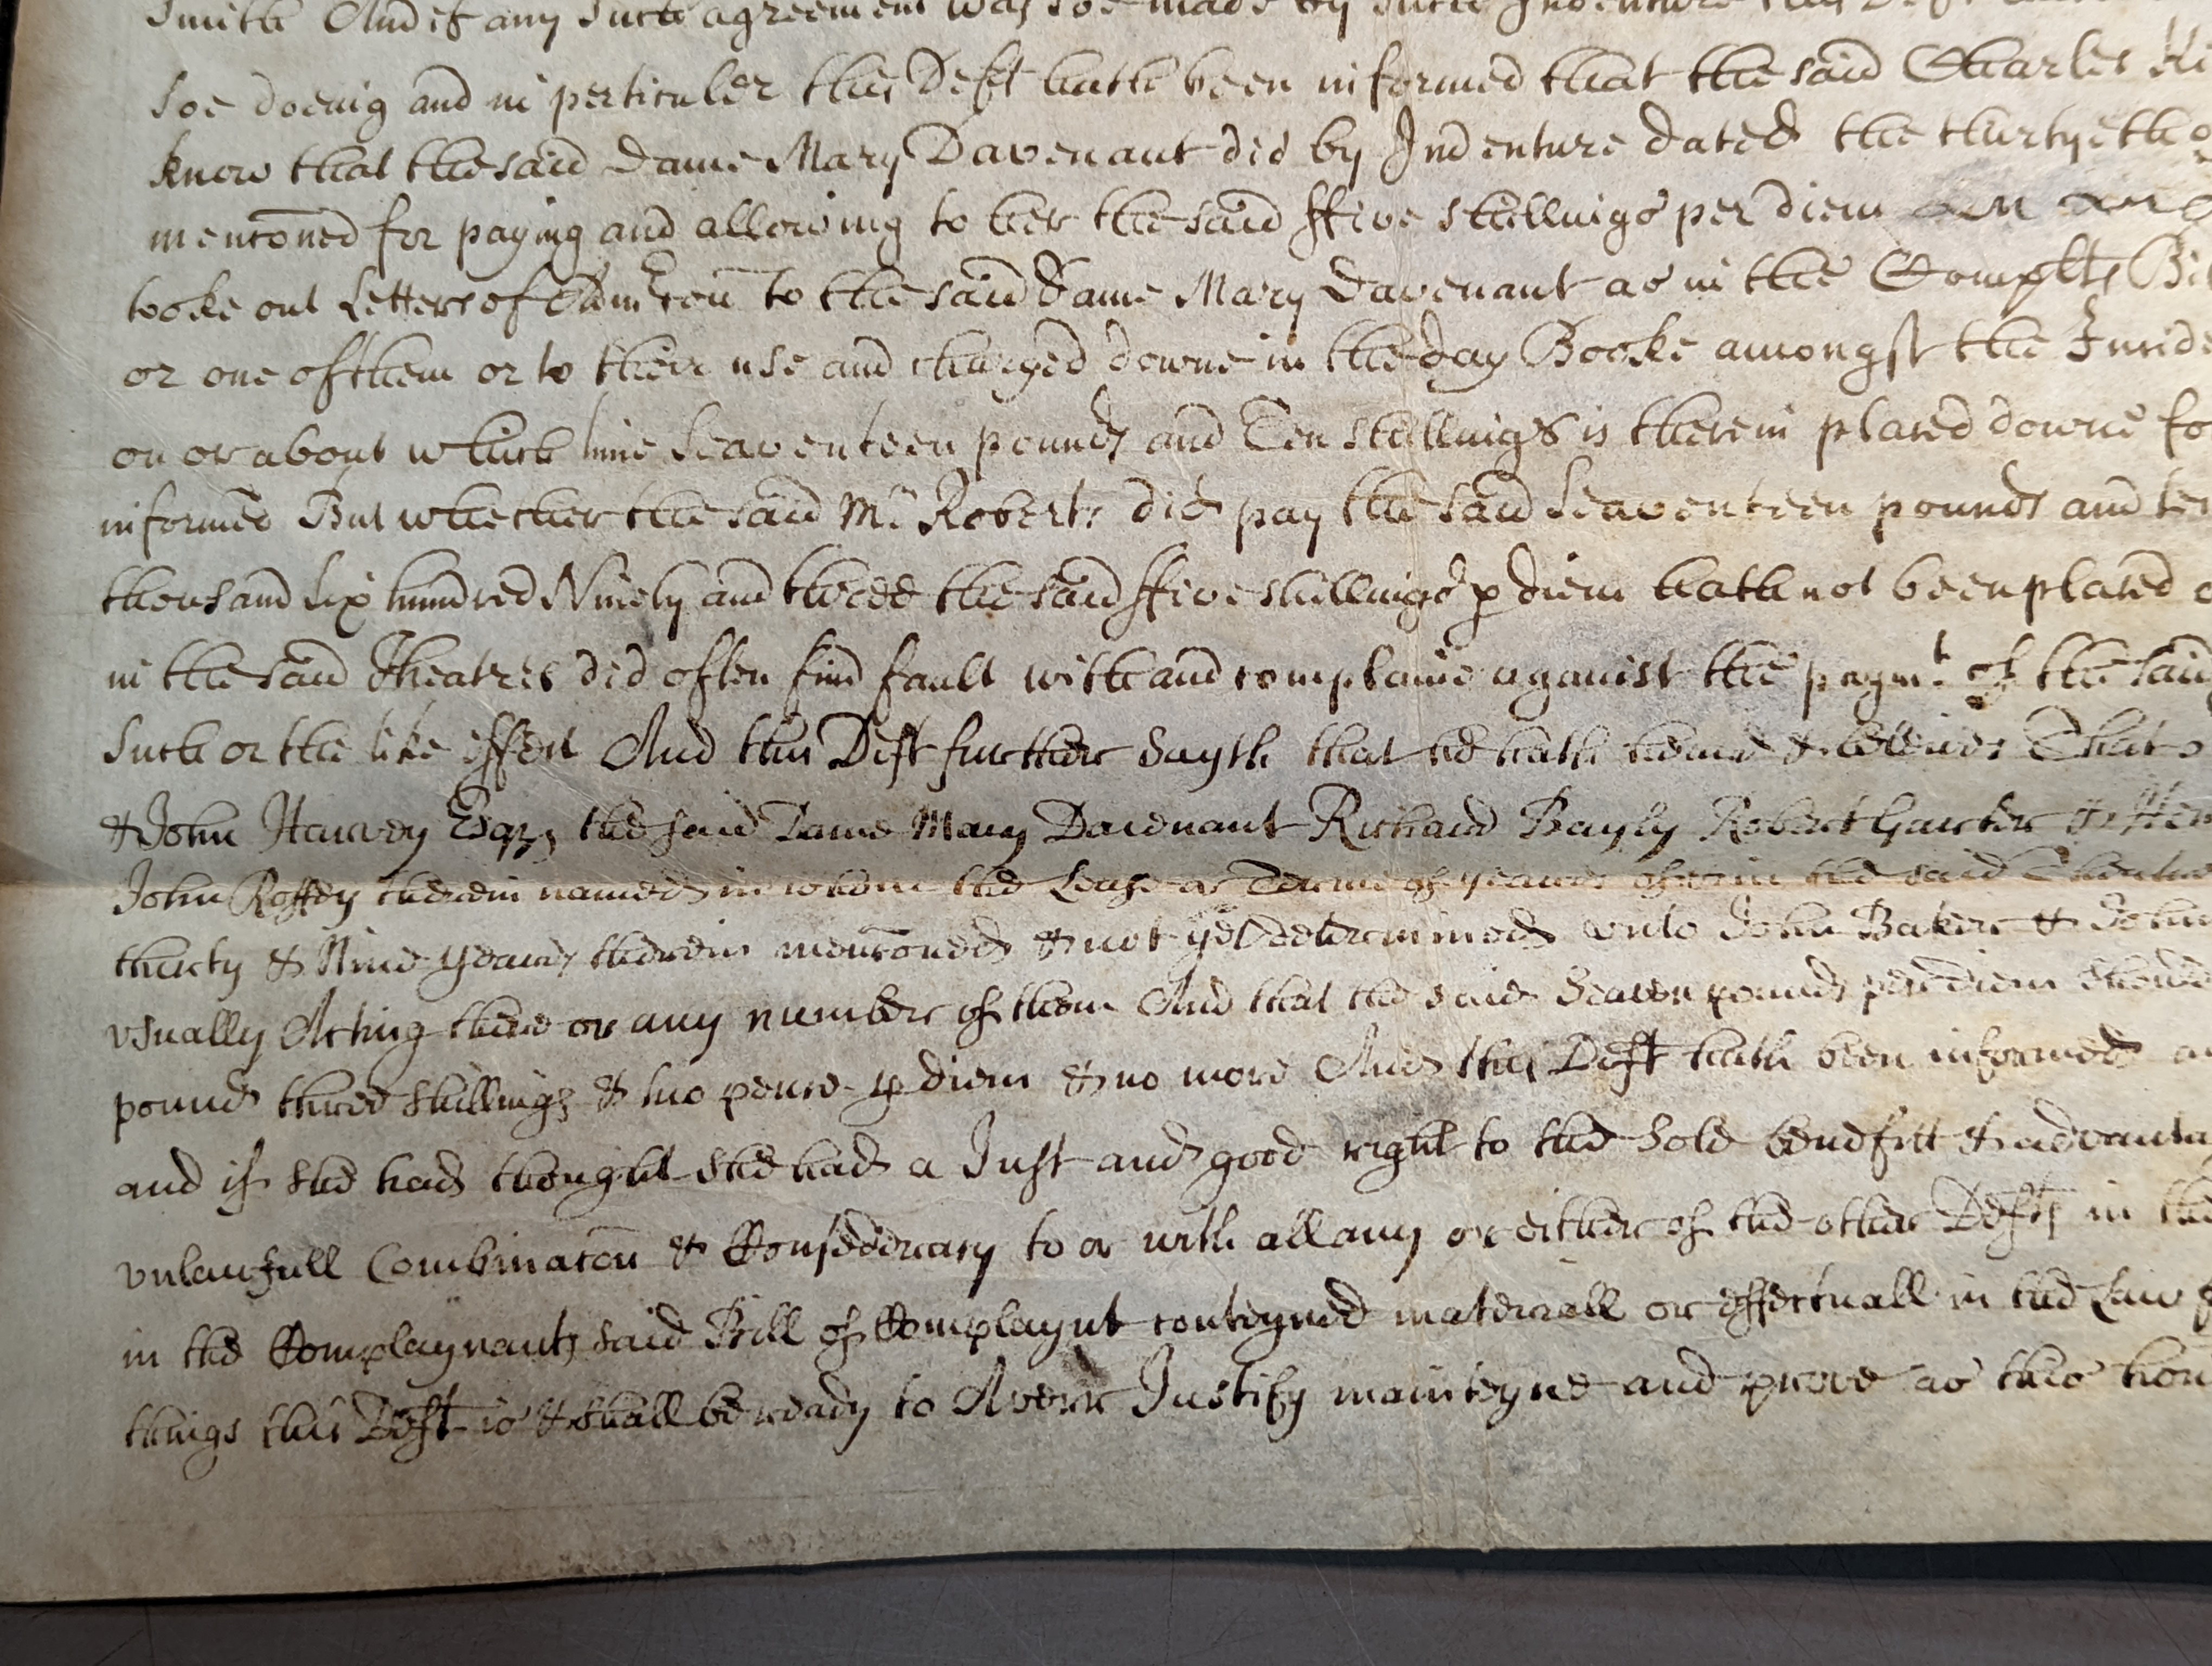 Smith And if any such agreement was soe made by such Indenture this Deft
soe doeing and in perticuler this Deft hath been informed that the said Charles
know that the said Dame Mary Davenant did by Indenture dated the thirtyeth
mentoned for paying and allowing to her the said ffive shillings per diem
tooke out Letters of Admrcon to the said Dame Mary Davenant as in the Complts
or one of them or to their use and charged downe in the day Booke amongst the
on or about which time Seaventeen pounds and Ten shillings is therein placed downe
informed But whether the said Mr. Roberts did pay the said Seaventeen pounds and
thousand six hundred Ninety and three the said ffive shillings p diem hath not been placed
in the said Theatres did often find fault with and complaine against the paymt. of the said
such or the like effect And this Deft further Sayth that he hath heard & beleives That
& John Harvey Esqrs the said Dame Mary Davenant Richard Bayly Robert &
John Roffey therein named in whom the Lease or Terme of yeares of & in the said
thirty & Nine yeares therein mentoned & not yet determined unto John Baker & John
usually Acting there or any number of them And that the said Seaven pounds per diem
pound three shillings & two pence p diem & no more And this Deft hath been informed
and if she had thought she had a Just and good right to the sole benefitt &
unlawfull Combinacon & Confederacy to or with all any or either of the other Defts in the
in the Complaynants said Bill of Complaynt conteyned materiall or effectuall in the Law
things this Deft is & shall be ready to Averr Justify mainteyne and prove as this